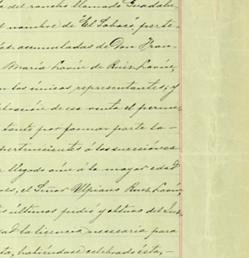 a del rancho llamado Guadalu
l nombre de "El Sabaco", perte-
ad acumuladas de Don Fran-
María Lavín de Ruiz Lavín,
on los únicos representantes; y
ebración de esa venta el permi-
tanto por formar parte la-
pertenecientes á las sucesiones
n llegado aún á la mayor edad
el Señor Ulpiano Ruiz Lavín,
s últimos pidió y obtuvo del Juz-
ad la licencia necesaria para
ta, habiéndose celebrado ésta,-